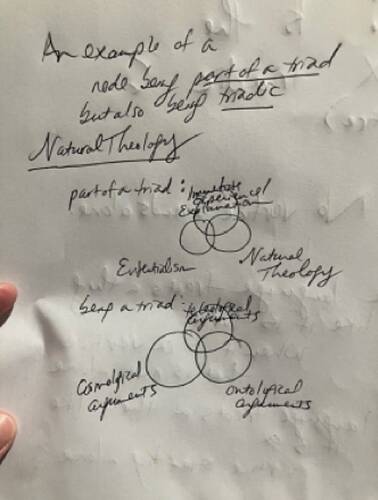 An example of a
node being part of a triad
but also being triadic
Natural Theology
part of a triad: Immediate
experience/
Explanation
Natural
Theology
being a triad: teleological
arguments
Cosmological
arguments
Ontological
arguments